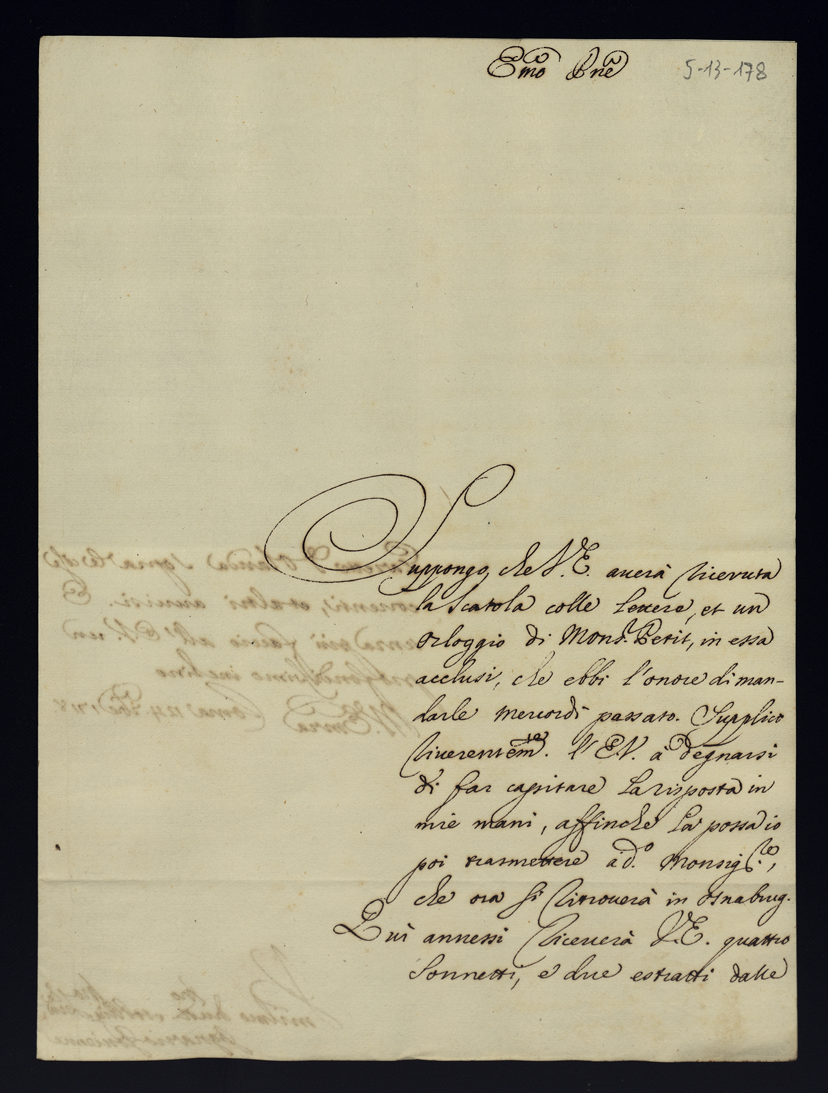 Emo Pne
5-13-178
Suppongo, che V.E. auerà riceruta
la scatola colle lettere, et un
orloggio di Mons. Petit, in essa
acclusi, che ebbi l'onore di man-
darle mercordì passato. Supplico
riuerentemte. l'E.V. à degnarsi
di far capitare la risposta in
mie mani, affinche la possa io
poi trasmettere à do. Monsigre,
che ora si ritrouerà in osnabrug.
Qui annessi riceuerà V.E. quattro
Sonnetti, e due estratti dalle